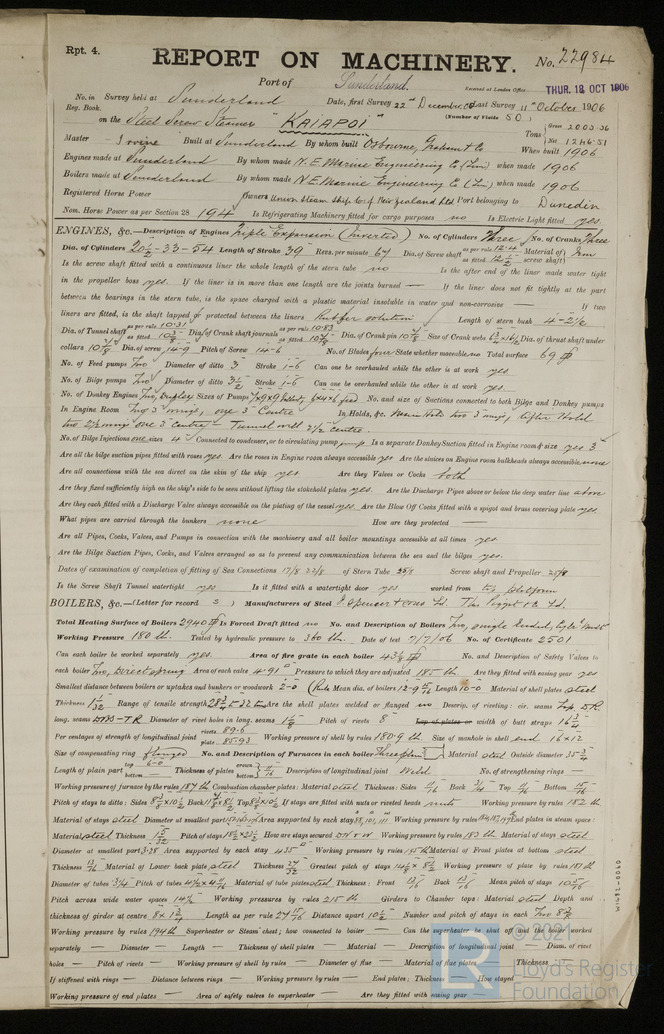 Rpt. 4.
REPORT ON MACHINERY.
No. 22984
Port of Sunderland.
Received at London Office THUR. 18 OCT 1906
No. in Survey held at Sunderland Date, first Survey 22nd December, 05 Last Survey 11th October 1906
Reg. Book. (Number of Visits 50)
on the Steel Screw Steamer "KAIAPOI"
Tons Gross 2003.36
Net 1246.51
Master Irvine Built at Sunderland By whom built Osbourne, Graham & Co When built 1906
Engines made at Sunderland By whom made N.E. Marine Engineering Co (Lim) when made 1906
Boilers made at Sunderland By whom made N.E. Marine Engineering Co (Lim) when made 1906
Registered Horse Power Owners Union Steam Ship Co of New Zealand Ltd Port belonging to Dunedin
Nom. Horse Power as per Section 28 194 Is Refrigerating Machinery fitted for cargo purposes no Is Electric Light fitted yes
ENGINES, &c.—Description of Engines Triple Expansion (Inverted) No. of Cylinders Three No. of Cranks Three
Dia. of Cylinders 20½-33-54 Length of Stroke 39 Revs. per minute 67 Dia. of Screw shaft as per rule 12.4 as fitted 12½ Material of screw shaft Iron
Is the screw shaft fitted with a continuous liner the whole length of the stern tube no Is the after end of the liner made water tight
in the propeller boss yes. If the liner is in more than one length are the joints burned — If the liner does not fit tightly at the part
between the bearings in the stern tube, is the space charged with a plastic material insoluble in water and non-corrosive — If two
liners are fitted, is the shaft lapped or protected between the liners Rubber solution Length of stern bush 4-2½
Dia. of Tunnel shaft as per rule 10.31 as fitted 10⅜ Dia. of Crank shaft journals as per rule 10.83 as fitted 10⅞ Dia. of Crank pin 10⅞ Size of Crank webs Dia. of thrust shaft under
collars 10⅞ Dia. of screw 14-9 Pitch of Screw 14-6 No. of Blades four State whether moveable no Total surface 69
No. of Feed pumps Two Diameter of ditto 3 Stroke 1-6 Can one be overhauled while the other is at work yes
No. of Bilge pumps Two Diameter of ditto 3½ Stroke 1-6 Can one be overhauled while the other is at work yes.
No. of Donkey Engines Two, Duplex Sizes of Pumps No. and size of Suctions connected to both Bilge and Donkey pumps
In Engine Room Two 3" wings, one 3" Centre In Holds, &c. Main Hold two 3" wings, After Hold
two 2½ wings one 3" centre — Tunnel well 2½ centre.
No. of Bilge Injections one sizes 4 Connected to condenser, or to circulating pump pump Is a separate Donkey Suction fitted in Engine room & size yes 3"
Are all the bilge suction pipes fitted with roses yes. Are the roses in Engine room always accessible yes Are the sluices on Engine room bulkheads always accessible none
Are all connections with the sea direct on the skin of the ship yes. Are they Valves or Cocks both
Are they fixed sufficiently high on the ship's side to be seen without lifting the stokehold plates yes. Are the Discharge Pipes above or below the deep water line above
Are they each fitted with a Discharge Valve always accessible on the plating of the vessel yes. Are the Blow Off Cocks fitted with a spigot and brass covering plate yes.
What pipes are carried through the bunkers none How are they protected —
Are all Pipes, Cocks, Valves, and Pumps in connection with the machinery and all boiler mountings accessible at all times yes.
Are the Bilge Suction Pipes, Cocks, and Valves arranged so as to prevent any communication between the sea and the bilges yes.
Dates of examination of completion of fitting of Sea Connections 17/8 22/8 of Stern Tube Screw shaft and Propeller
Is the Screw Shaft Tunnel watertight yes Is it fitted with a watertight door yes worked from top platform
BOILERS, &c.—(Letter for record S) Manufacturers of Steel J. Spencer & Sons Ld. The Piggott & Co Ld.
Total Heating Surface of Boilers 2940 Is Forced Draft fitted no No. and Description of Boilers Two, single ended,
Working Pressure 180 lb. Tested by hydraulic pressure to 360 lb. Date of test 7/7/06 No. of Certificate 2501
Can each boiler be worked separately yes. Area of fire grate in each boiler No. and Description of Safety Valves to
each boiler Two, Direct Spring Area of each valve 4.91 Pressure to which they are adjusted 185 lb. Are they fitted with easing gear yes
Smallest distance between boilers or uptakes and bunkers or woodwork 2-0 Mean dia. of boilers 12-9 Length 10-0 Material of shell plates steel
Thickness 1 1/32 Range of tensile strength Are the shell plates welded or flanged no Descrip. of riveting: cir. seams lap, DR
long. seams DBS-TR Diameter of rivet holes in long. seams 1⅛ Pitch of rivets 8" Lap of plates or width of butt straps 16¾
Per centages of strength of longitudinal joint rivets 89.6 plate 85.93 Working pressure of shell by rules 180.9 lb. Size of manhole in shell end 16×12
Size of compensating ring flanged No. and Description of Furnaces in each boiler Three plain Material steel Outside diameter 35¾
Length of plain part top 6-0 bottom — Thickness of plates crown bottom Description of longitudinal joint Weld No. of strengthening rings —
Working pressure of furnace by the rules 187 lb Combustion chamber plates: Material steel Thickness: Sides Back Top Bottom
Pitch of stays to ditto: Sides Back Top If stays are fitted with nuts or riveted heads nuts Working pressure by rules 182 lb
Material of stays steel Diameter at smallest part Area supported by each stay Working pressure by rules End plates in steam space:
Material steel Thickness Pitch of stays How are stays secured DN & W Working pressure by rules 182 lb Material of stays steel
Diameter at smallest part 3.28 Area supported by each stay 435 Working pressure by rules Material of Front plates at bottom steel
Thickness Material of Lower back plate steel Thickness Greatest pitch of stays Working pressure of plate by rules 187 lb
Diameter of tubes 3¼ Pitch of tubes Material of tube plates steel Thickness: Front Back Mean pitch of stays
Pitch across wide water spaces 14¼ Working pressures by rules 215 lb Girders to Chamber tops: Material steel Depth and
thickness of girder at centre Length as per rule Distance apart 10½ Number and pitch of stays in each Two
Working pressure by rules 194 lb Superheater or Steam chest; how connected to boiler — Can the superheater be shut off and the boiler worked
separately — Diameter — Length — Thickness of shell plates — Material Description of longitudinal joint — Diam. of rivet
holes — Pitch of rivets — Working pressure of shell by rules — Diameter of flue — Material of flue plates Thickness
If stiffened with rings — Distance between rings — Working pressure by rules — End plates: Thickness — How stayed
Working pressure of end plates — Area of safety valves to superheater — Are they fitted with easing gear —
W1482-0060
© 2021
LR
Lloyd's Register
Foundation